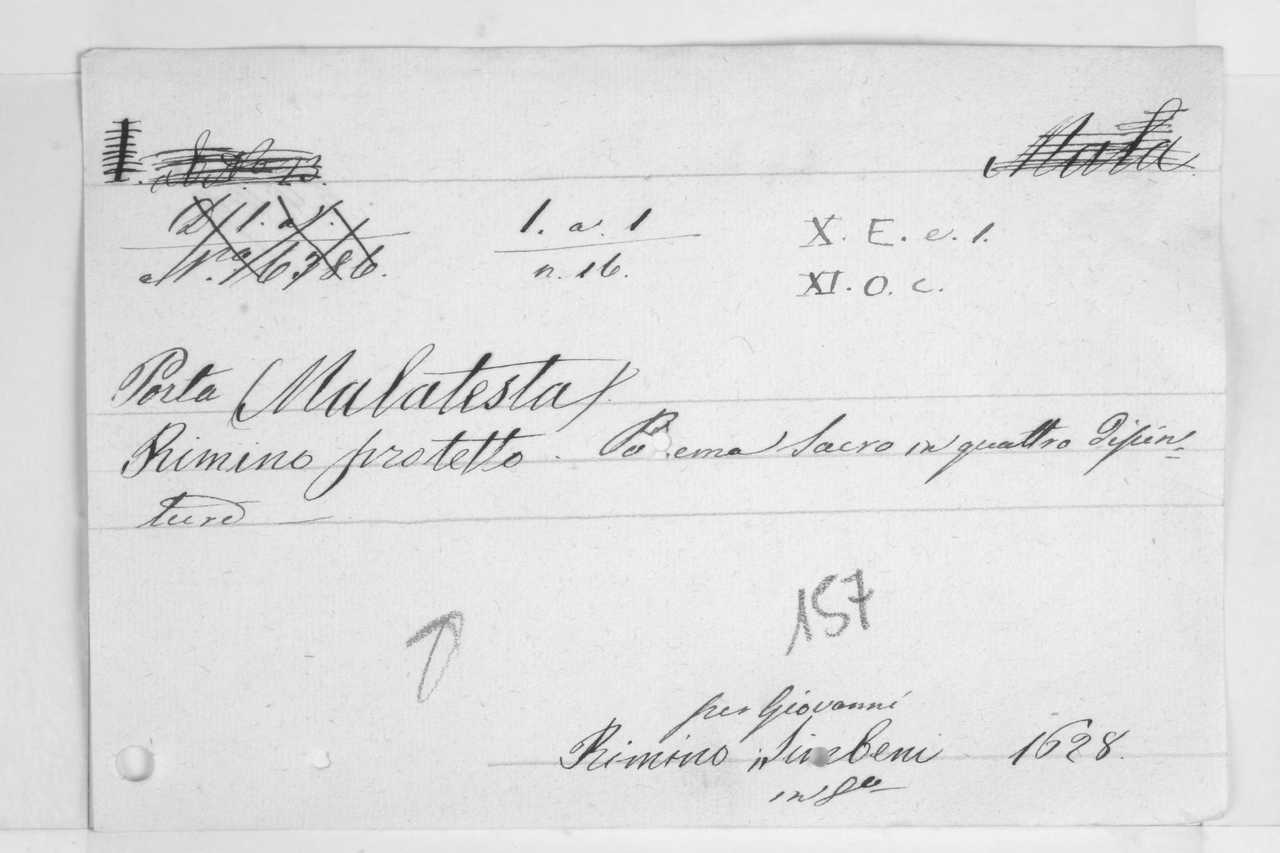 I.
Mala
D 1. a. 1.
N.° 16386.
1. a. 1
n. 16.
X. E. e. 1.
XI. O. c.
Porta (Malatesta)
Rimino protetto. Poema sacro in quattro dipin=
ture
157
per Giovanni
Rimino, Simbeni 1628.
in 8°